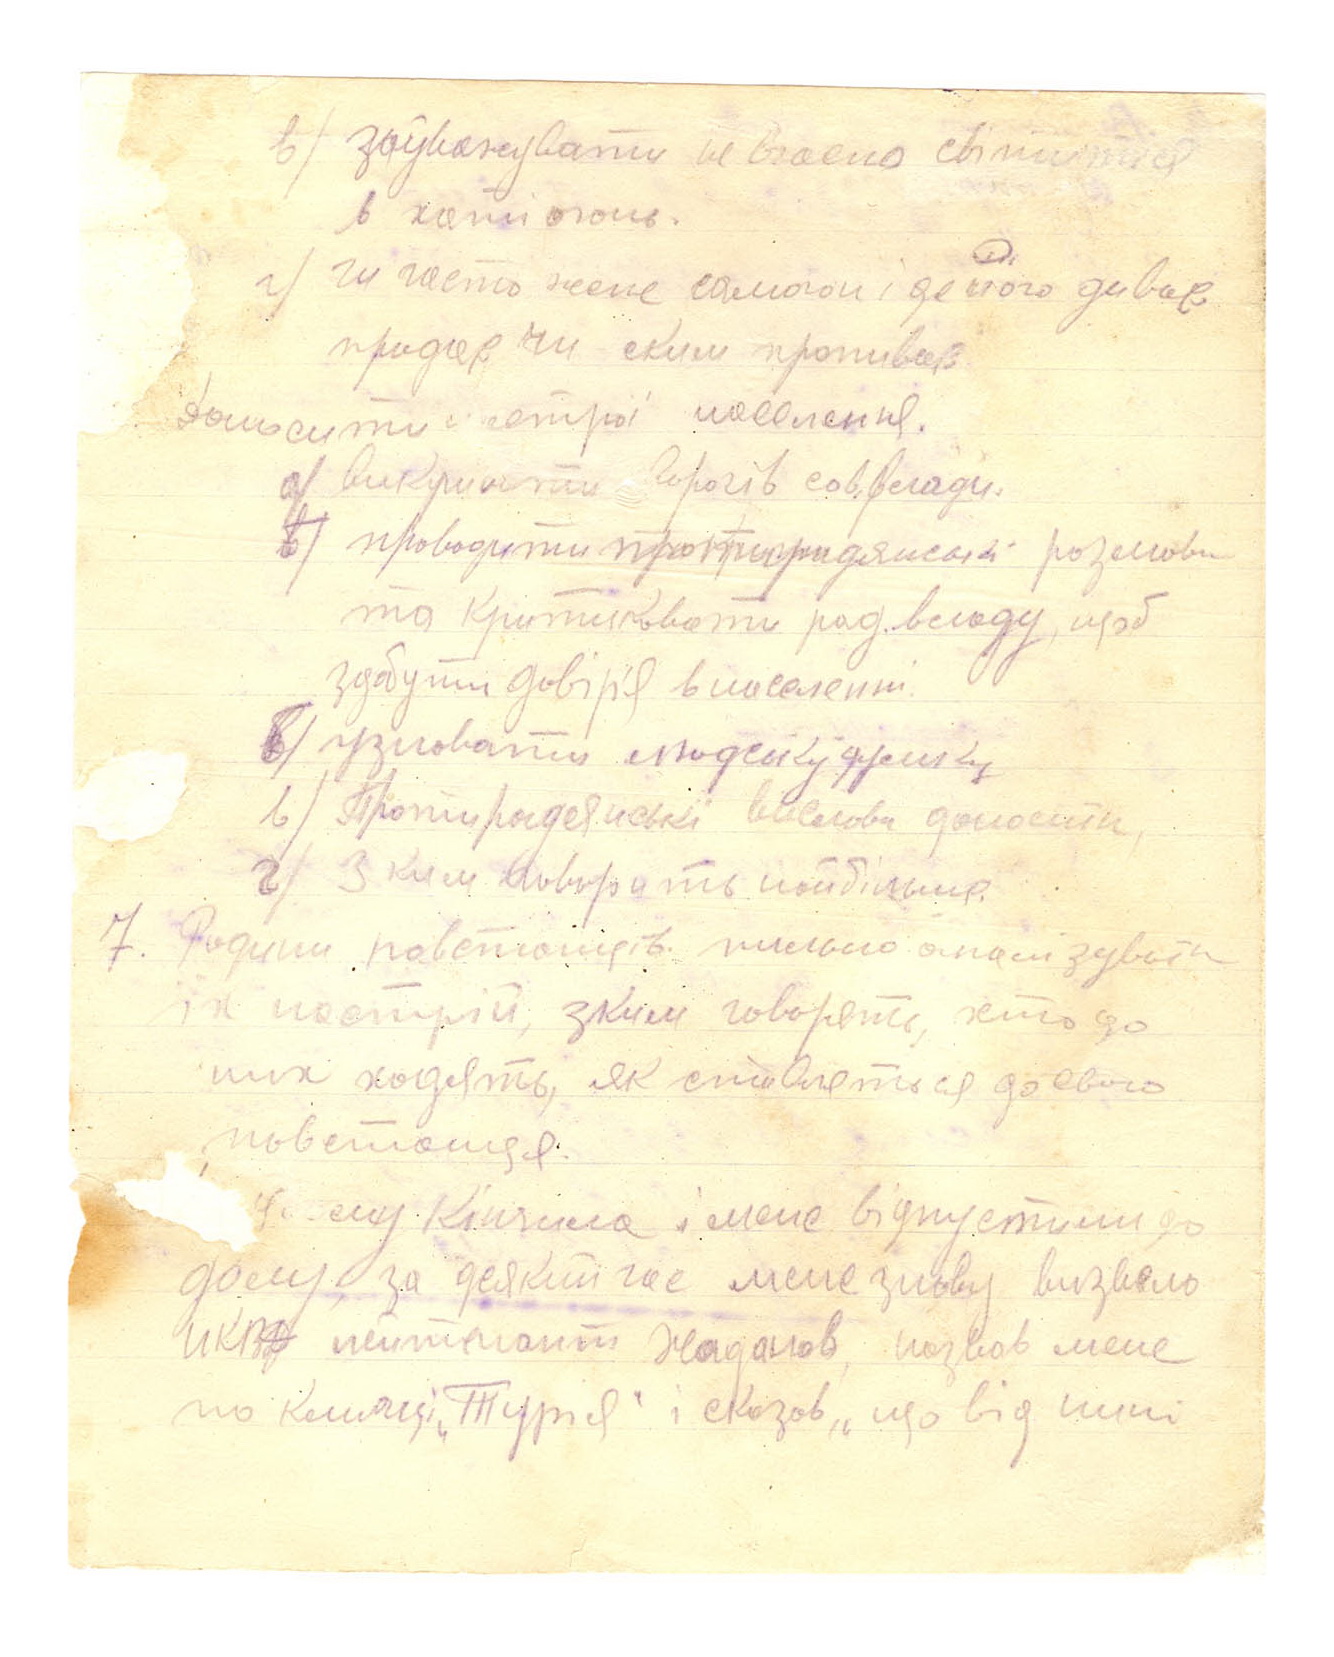 в/ зауважувати не вчасно світиться
в хаті огонь.
г/ чи часто жене самогон і де його диває
продає чи ским пропиває
Доносити настрої населення.
а/ викривати ворогів сов. влади.
б/ проводити протирадянські розмови
та критиковати рад. владу, щоб
здобути довір'я в населенні.
б/ узнавати людську думку
в/ Протирадянські вислови доносити,
г/ З ким говорять найбільше.
7. Родини повстанців пильно аналізувати
їх настрій, зким говорять, хто до
них ходять, як ставляться до свого
повстанця.
Кінчила і мене відпустили до
дому, за деякий час мене знову визвало
НКВД лейтенант Жаданов, назвав мене
по кличці „Турія" і сказав, „що від нині